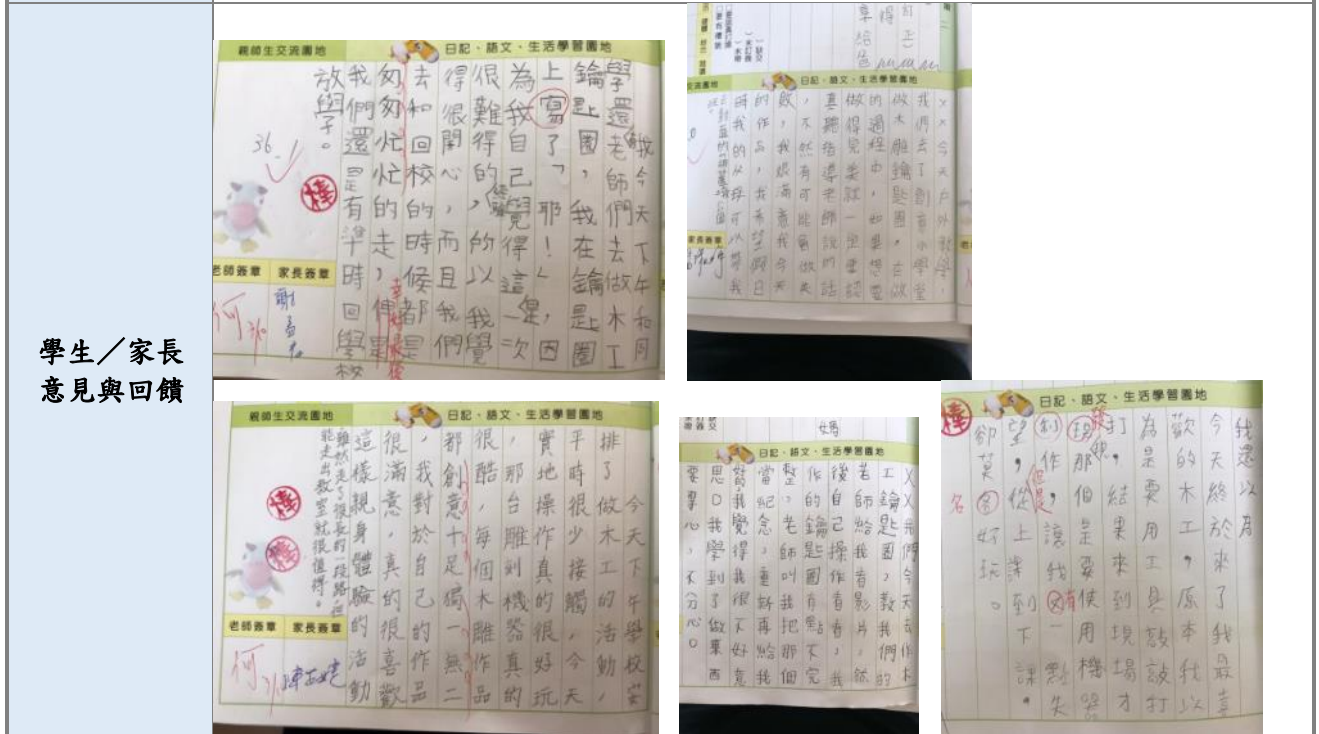 學生／家長
意見與回饋
親師生交流園地
日記、語文、生活學習園地
我今天下午和同
學還有老師們去做木工
鑰匙圈，我在鑰匙圈
上寫了「耶！」，因
為我自己覺得這是一次
很難得的經驗，的以我覺
得很開心，而且我們
去和回校的時候都是
匆匆忙忙的走，幸好最後但是
我們還是有準時回學校
放學。
36
棒
老師簽章
家長簽章
何
日記、語文、生活學習園地
ㄨㄨ今天戶外教學，
我們去了創育小學堂
做木雕鑰匙圈，在做
的過程中，如果想要
做得完美就一定要認
真聽指導老師說的話
，不然有可能會做失
敗，我很滿意我今天
的作品，我希望
時我的
可以
家長簽章
親師生交流園地
日記、語文、生活學習園地
今天下午學校安
排了做木工的活動，
平時很少接觸，今天
實地操作真的很好玩
，那台雕刻機器真的
很酷，每個木雕作品
都創意十足獨一無二
，我對於自己的作品
很滿意，真的很喜歡
這樣親身體驗的活動
雖然走了很長的一段路，但
能走出教室就很值得。
棒
棒
老師簽章
家長簽章
何
媽
日記、語文、生活學習園地
ㄨㄨ我們今天去作木
工鑰匙圈，教我們的
老師給我看影片，然
後自己操作看看，我
作的鑰匙圈有點不完
整，老師叫我把那個
當紀念，重新再給我
我覺得我很不好意
思。我學到了做東西
要專心，不分心。
棒
日記、語文、生活學習園地
我還以為
今天終於來了我最喜
歡的木工，原本我以
為是要用工具敲敲打
打，結果來到現場才
發現那個是要使用機器
制作，但是讓我有一點失
望，從上課到下課，
卻莫名好玩。